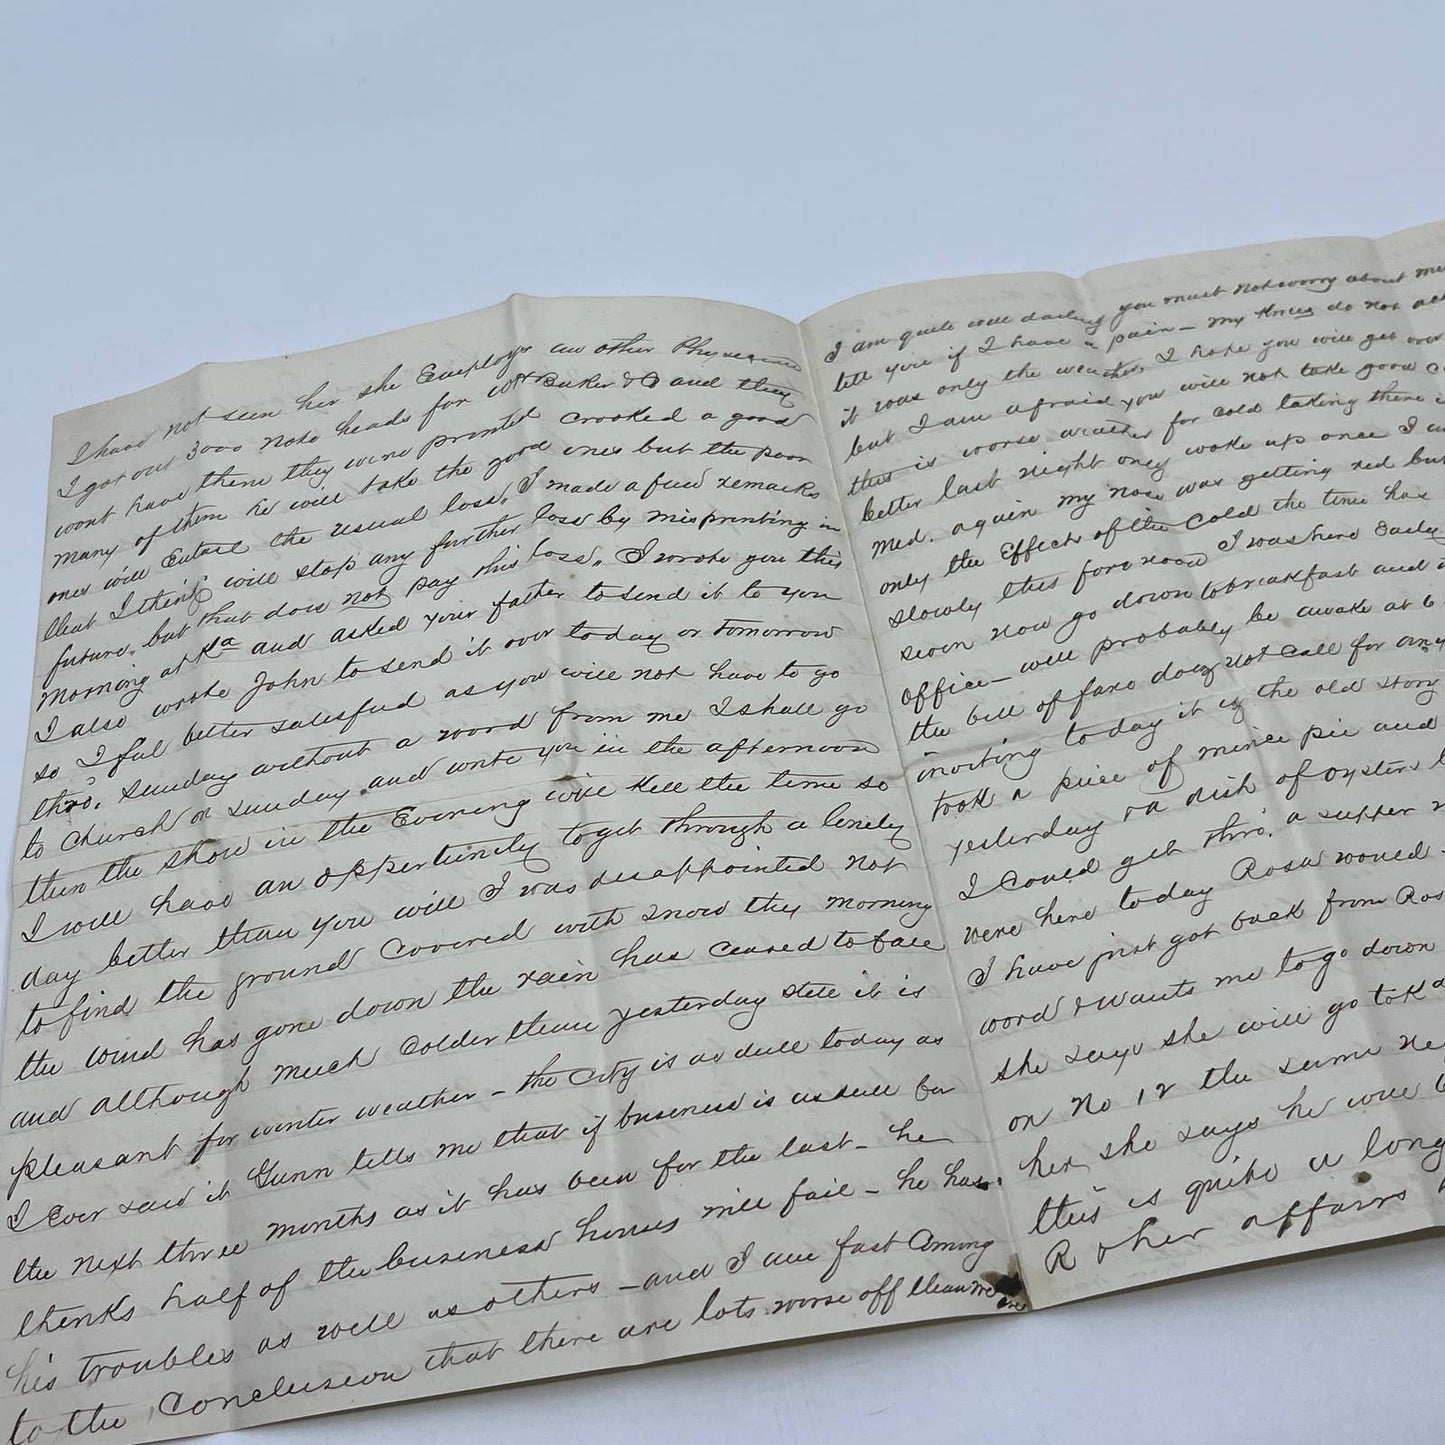 I have not seen her she Employs an other Physician
I got out 3000 Note heads for Baker & and they
wont have them they were printed crooked a good
many of them he will take the good ones but the poor
ones will Entail the usual loss, I made a few remarks
that I think will stop any further loss by misprinting in
future, but that does not pay this loss. I wrote you this
morning at and asked your father to send it to you
I also wrote John to send it over today or tomorrow
so I feel better satisfied as you will not have to go
thro, Sunday without a word from me I shall go
to Church on Sunday and write you in the afternoon
then the show in the Evening will kill the time so
I will have an oppertunity to get through a lonely
day better than you will I was disappointed not
to find the ground covered with snow this morning
the wind has gone down the rain has ceased to fall
and although much colder than yesterday still it is
pleasant for winter weather – the City is as dull today as
I Ever said it Gunn tells me that if business is as dull for
the next three months as it has been for the last – he
thinks half of the business houses will fail – he has
his troubles as well as others – and I am fast Coming
to the Conclusion that there are lots worse off than we
are
I am quite well darling you must not worry about me
tell you if I have a pain – my Knees do not
it was only the weather I hope you will get over
but I am afraid you will not take good
this is worse weather for cold taking there
better last night only woke up once I
Med. again my nose was getting red but
only the Effects of the Cold the time has
slowly this fore noon I was here Early
seven now go down to breakfast and
office – will probably be awake at 6
the bill of fare does not call for any
inviting today it is the old story
took a piece of mince pie and
yesterday a dish of oysters
I could get thro, a supper
were here today Rosa would
I have just got back from
word & wants me to go down
she says she will go to
on No 12 the same
her, she says he will
this is quite a long
R other affairs